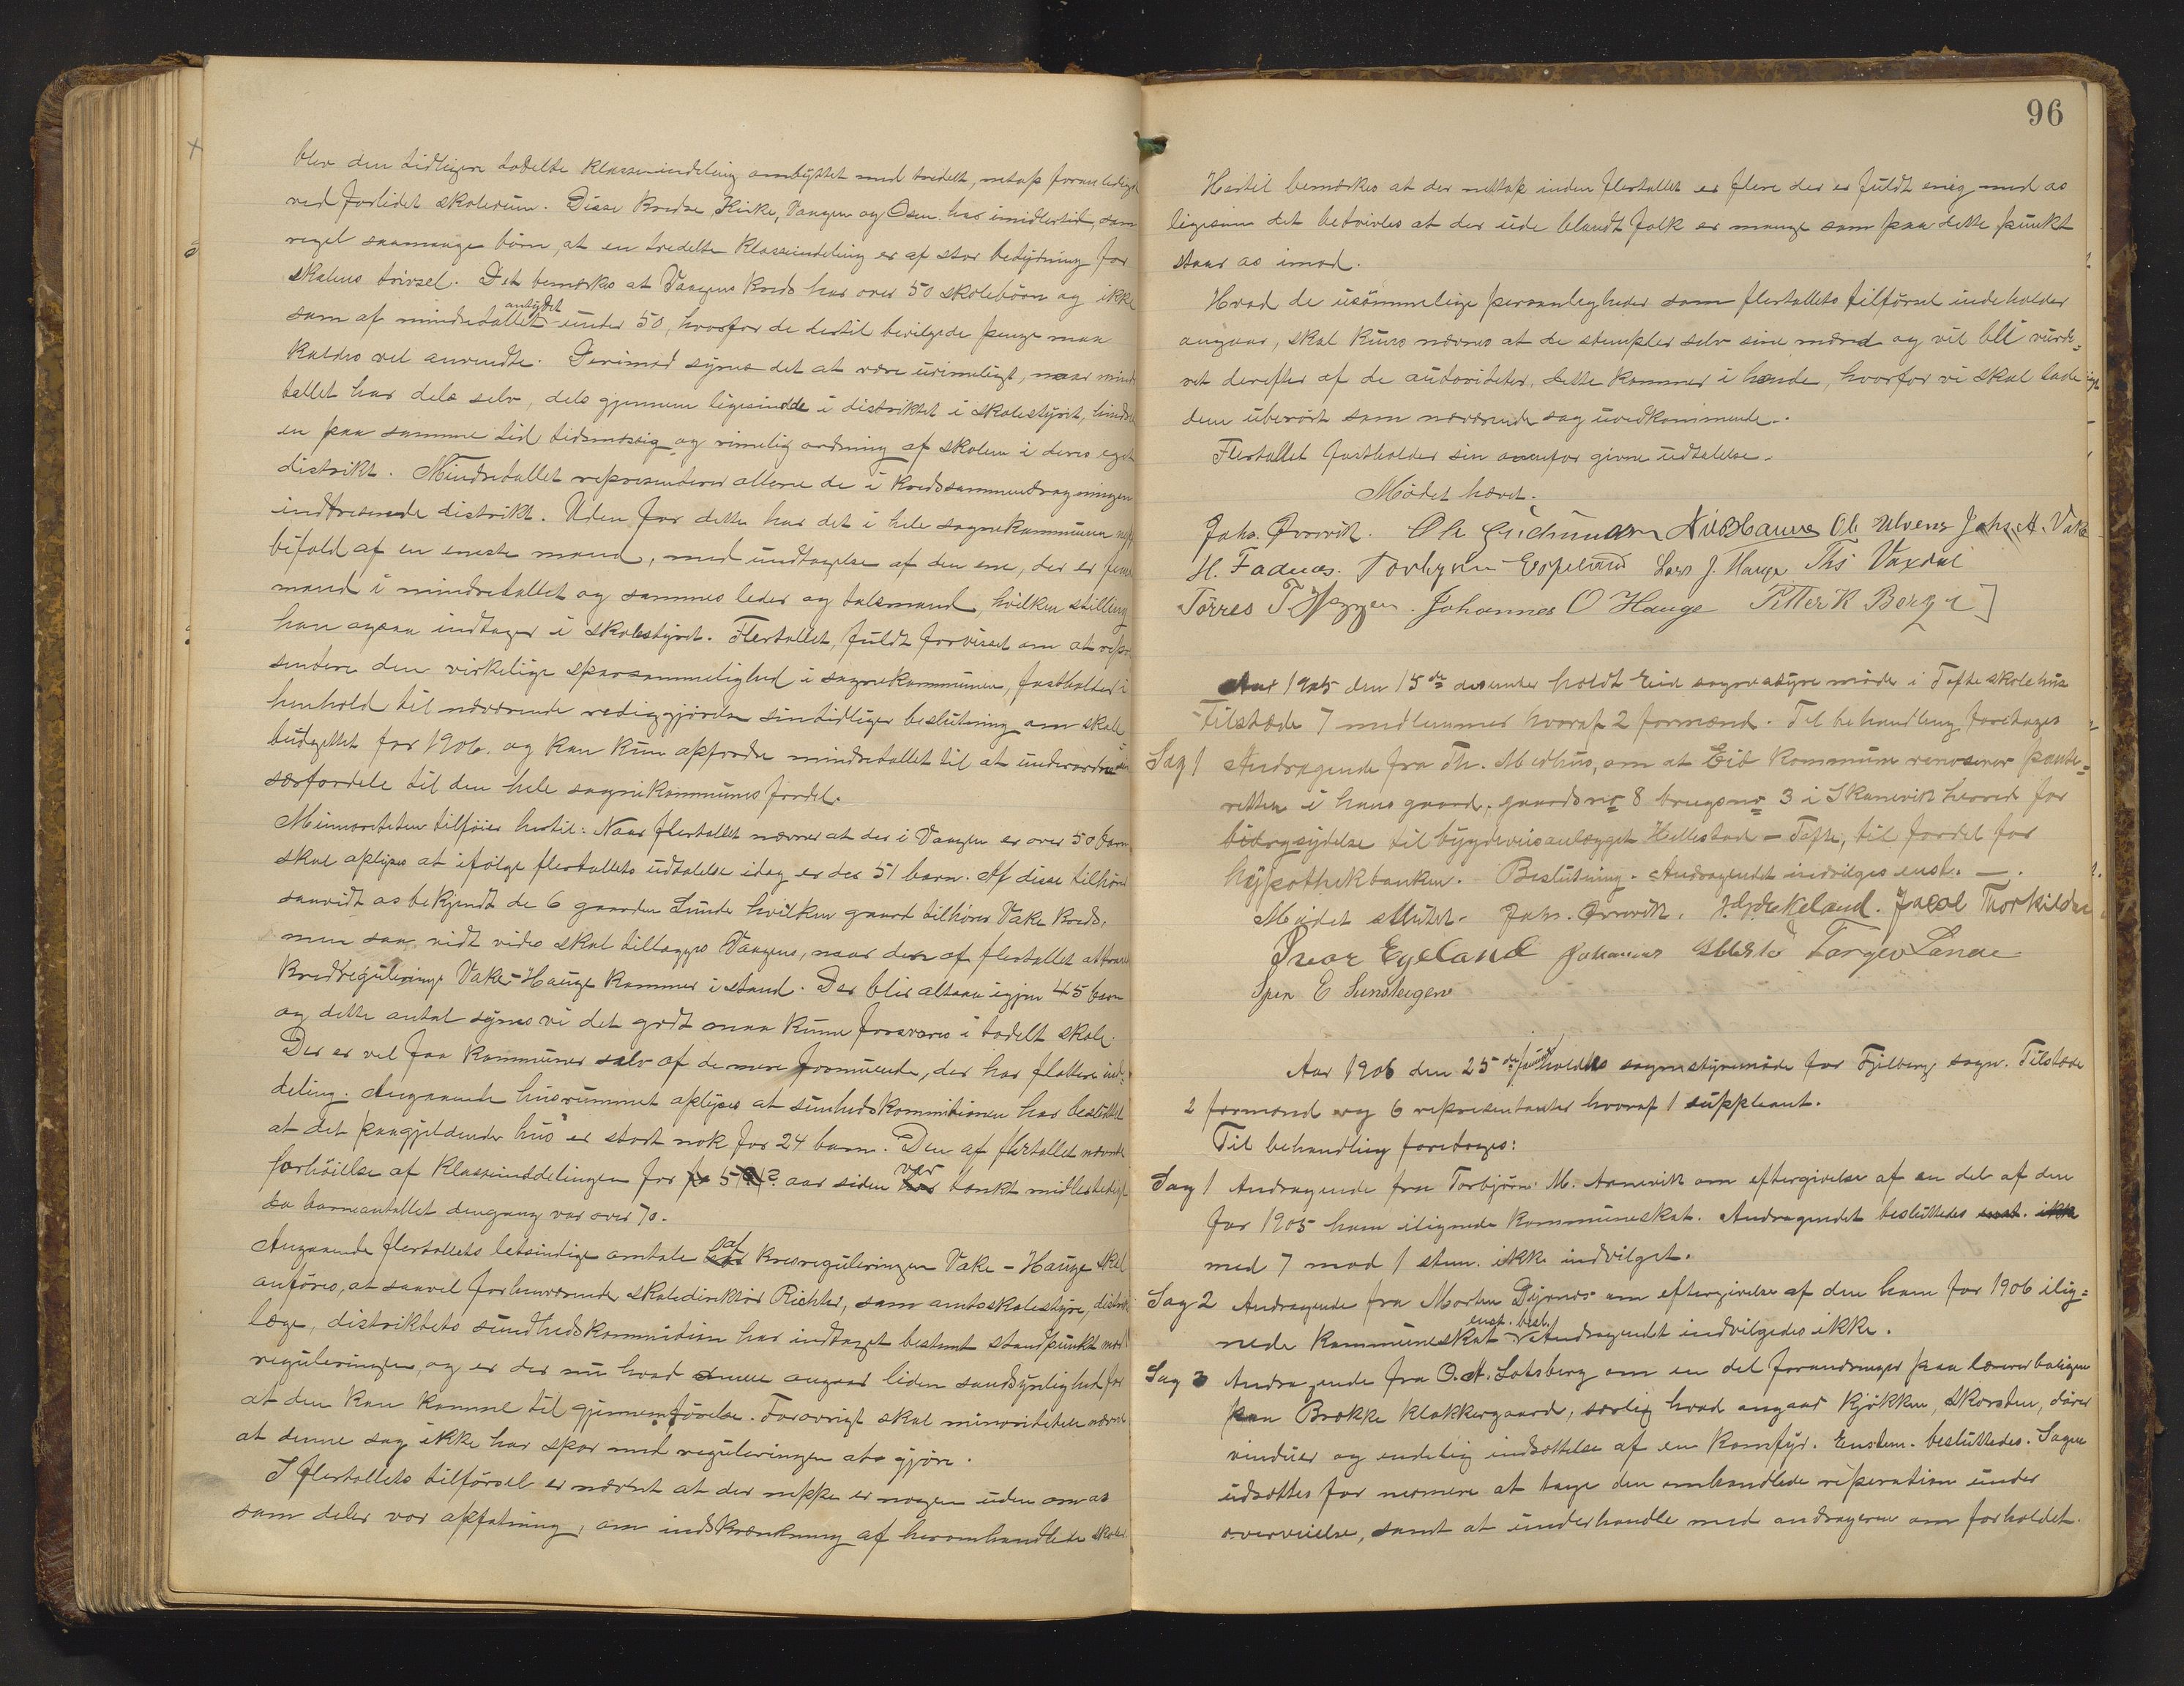 blev den tidligere todelte klasseinddeling ombyttet med tredelt, netop foranlediget
ved forlidet skolerum. Disse kredse, Kirke, Vaagen og Osen har imidlertid, som
regel saamange børn, at en tredelte klasseinddeling er af stor betydning for
skolens trivsel. Det bemærkes at Vaagens kreds har over 50 skolebørn og ikke
som af mindretallet antydet under 50, hvorfor de dertil bevilgede penge maa
kaldes vel anvendte. Derimod synes det at være urimeligt, naar mindre
tallet har dels selv, dels gjennem ligesindede i distriktet i skolestyret, hindret
en paa samme tid tidsmæssig og rimelig ordning af skolen i deres eget
distrikt. Mindretallet representerer allene de i kredssammendragningen
indtresserede distrikt. Uden for dette har det i hele sognekommunen
bifald af en eneste mand, med undtagelse af den ene, der er
mand i mindretallet og sammes leder og talsmand, hvilken stilling
han ogsaa indtager i skolestyret. Flertallet, fuldt forvisset om at repre
sentere den virkelige sparsommelighed i sognekommunen, fastholder i
henhold til nærværende rediggjørelse sin tidligere beslutning om skole
budgettet for 1906. og kan kun opfordre mindretallet til at underordne
særfordele til den hele sognekommunes fordel.
Minnoriteten tilføier hertil: Naar flertallet nævner at der i Vaagen er over 50 barn
skal oplyses at ifølge flertallets udtalelse idag er der 51 barn. Af disse tilhører
saavidt os bekjendt de 6 gaarden Lunde hvilken gaard tilhører Vake kreds,
men saa vidt vides skal tillægges Vaagens, naar den af flertallet attraaede
kredsregulering Vake-Hauge kommer istand. Der blir altsaa igjen 45 barn
og dette antal synes vi det godt maa kunne forsvares i todelt skole.
Der er vel faa kommuner selv af de mere formuende, der har flottere ind-
deling. Angaaende husrummet oplyses at sundhedskommitionen har besluttet
at det paagjeldende hus er stort nok for 24 barn. Den af flertallet nævnte
forhøielse af klasseinddelingen for 5 ? aar siden var tænkt midlertidigt
da barneantallet dengang var over 70.
Angaaende flertallets letsindige omtale af kredsreguleringen Vake - Hauge skal
anføres, at saavel forhenværende skoledirektør Richter, som amtsskolestyre, distrikts
læge, distriktets sundhedskommition har indtaget bestemt standpunkt mod
reguleringen, og er der nu hvad denne angaar liden sandsynlighed for
at den kan komme til gjennemførelse. Forøvrigt skal minoriteten nævne
at denne sag ikke har spor med reguleringen at gjøre.
I flertallets tilførsel er nævnt at der neppe er nogen uden om os
som deler vor opfatning, om indskrænkning af heromhandlede skoler
96
Hertil bemærkes at der nettop inden flertallet er flere der er fuldt enig med os
ligesom det betviles at der ude blandt folk er mange som paa dette punkt
staar os imod.
Hvad de usømmelige personlegheder som flertallets tilførsel indeholder
angaar, skal kuns nævnes at de stempler selv sine mænd og vil bli vurde-
ret derefter af de autoriteter, dette kommer i hænde, hvorfor vi skal lade
dem uberørt som nærværende sag uvedkommende.
Flertallet fastholder sin ovenfor givne udtalelse.
Mødet hævet.
Johs. Ørrevik. Ole Gudmundsen Ole Ulvenes Johs. A. Vake
H. Fadnes. Torbjørn Espeland Lars J. Hauge Ths Vaxdal
Tørres T Johannes O Hauge Petter K Berge
Aar 1905 den 15de desember holdt Eid sognestyre møde i Tofte skolehus
Tilstede 7 medlemmer hvoraf 2 formænd. Til behandling foretages
Sag 1 Andragende fra Th. Medhus, om at Eid kommune renoserer pante-
retten i hans gaard, gaardsno 8 brugsno 3 i Skaanevik herred for
bidragsydelse til bygdeveisanlægget Hellestad - Tofte, til fordel for
hypothekbanken. Beslutning. Andragendet indvilges enst. -.
Mødet sluttet. Johs. Ørrevik. Jacob Thorkildsen
Ivar Egeland Johannes Torger Lande
E Sunsteigen
Aar 1906 den 25de januar holdtes sognestyremøde for Fjelberg sogn. Tilstede
2 formænd og 6 representanter hvoraf 1 suppleant.
Til behandling foretages:
Sag 1 Andragende fra Torbjørn M. Aanevik om eftergivelse af en del af den
for 1905 ham ilignede kommuneskat. Andragendet besluttedes enst. ikke
med 7 mod 1 stem. ikke indvilget.
Sag 2 Andragende fra Morten om eftergivelse af den ham for 1906 ilig-
nede kommuneskat enst. besl. Andragendet indvilgedes ikke.
Sag 3 Andragende fra O. A. Lotsberg om en del forandringer paa lærerboligen
paa Brekke klokkergaard, særlig hvad angaar kjøkken, skorsten, dører
vinduer og endelig indsættelse af en komfyr. Enstem. besluttedes. Sagen
udsættes for nærmere at tage den omhandlede reperation under
overveielse, samt at underhandle med andrageren om forholdet.